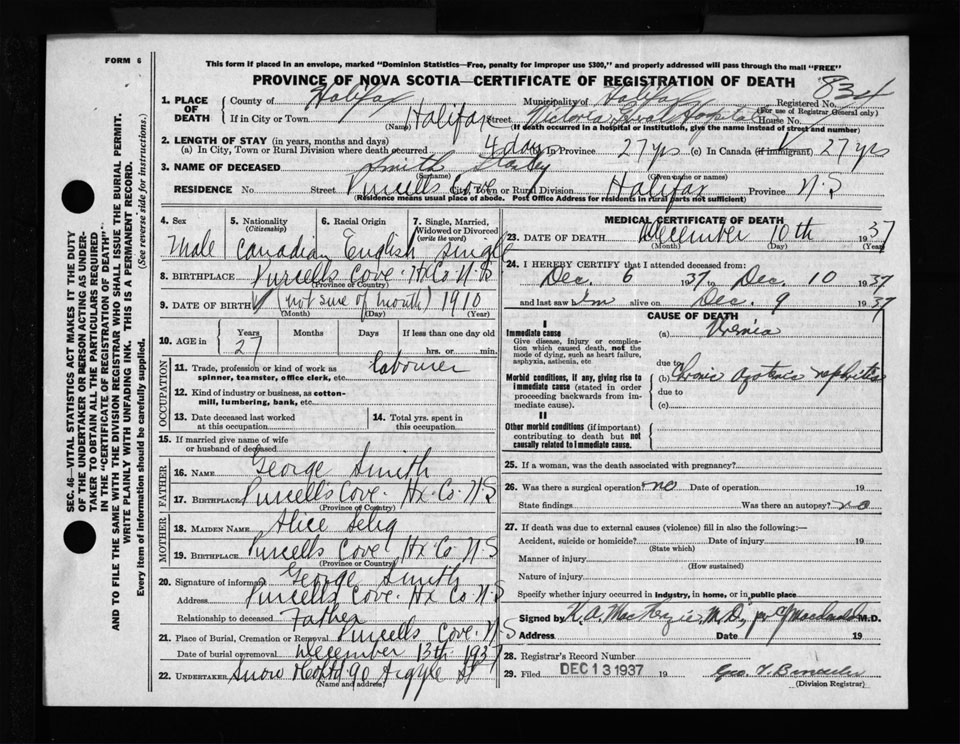 FORM 6
This form if placed in an envelope, marked "Dominion Statistics—Free, penalty for improper use $300," and properly addressed will pass through the mail "FREE"
PROVINCE OF NOVA SCOTIA—CERTIFICATE OF REGISTRATION OF DEATH
834
1. PLACE OF DEATH
County of Halifax Municipality of Halifax Registered No.
(For use of Registrar General only)
If in City or Town Halifax Street Victoria General Hospital House No.
(Name) (If death occurred in a hospital or institution, give the name instead of street and number)
2. LENGTH OF STAY (in years, months and days)
(a) In City, Town or Rural Division where death occurred 4 days In Province 27 yrs (c) In Canada (if immigrant) 27 yrs
3. NAME OF DECEASED Smith
(Surname) (Given name or names)
RESIDENCE No. Street Purcells Cove City, Town or Rural Division Halifax Province N.S
(Residence means usual place of abode. Post Office Address for residents in rural parts not sufficient)
4. Sex
Male
5. Nationality
(Citizenship)
Canadian
6. Racial Origin
English
7. Single, Married, Widowed or Divorced
(write the word)
Single
8. BIRTHPLACE Purcells Cove. Hx Co N.S
(Province or Country)
9. DATE OF BIRTH (not sure of month) 1910
(Month) (Day) (Year)
10. AGE in
Years Months Days If less than one day
27 hrs. or min.
OCCUPATION
11. Trade, profession or kind of work as spinner, teamster, office clerk, etc. labourer
12. Kind of industry or business, as cotton-mill, lumbering, bank, etc.
13. Date deceased last worked at this occupation
14. Total yrs. spent in this occupation
15. If married give name of wife or husband of deceased
FATHER
16. NAME George Smith
17. BIRTHPLACE Purcell's Cove. Hx. Co. N.S
(Province of Country)
MOTHER
18. MAIDEN NAME Alice Selig
19. BIRTHPLACE Purcells Cove. Hx Co N.S
(Province or Country)
20. Signature of informant George Smith
Address Purcells Cove. Hx Co N.S
Relationship to deceased Father
21. Place of Burial, Cremation or Removal Purcells Cove. N.S
Date of burial or removal December 13th 1937
22. UNDERTAKER Snow 90 Argyle St
(Name and address)
MEDICAL CERTIFICATE OF DEATH
23. DATE OF DEATH December 10th 1937
(Month) (Day) (Year)
24. I HEREBY CERTIFY that I attended deceased from:
Dec. 6 1937 to Dec. 10 1937
and last saw him alive on Dec. 9 1937
CAUSE OF DEATH
I
Immediate cause
Give disease, injury or complication which caused death, not the mode of dying, such as heart failure, asphyxia, asthenia, etc.
(a) Uremia
due to
Morbid conditions, if any, giving rise to immediate cause (stated in order proceeding backwards from immediate cause).
(b) Chronic azotemic nephritis
due to
(c)
II
Other morbid conditions (if important) contributing to death but not causally related to immediate cause.
25. If a woman, was the death associated with pregnancy?
26. Was there a surgical operation? no Date of operation 19
State findings Was there an autopsy? no
27. If death was due to external causes (violence) fill in also the following:—
Accident, suicide or homicide? Date of injury 19
(State which)
Manner of injury
(How sustained)
Nature of injury
Specify whether injury occurred in industry, in home, or in public place
Signed by K. A. MacKenzie, M.D., per M.D.
Address Date 19
28. Registrar's Record Number
29. Filed DEC 13 1937 19
(Division Registrar)
SEC. 46—VITAL STATISTICS ACT MAKES IT THE DUTY
OF THE UNDERTAKER OR PERSON ACTING AS UNDERTAKER TO OBTAIN ALL THE PARTICULARS REQUIRED
IN THE "CERTIFICATE OF REGISTRATION OF DEATH"
AND TO FILE THE SAME WITH THE DIVISION REGISTRAR WHO SHALL ISSUE THE BURIAL PERMIT.
WRITE PLAINLY WITH UNFADING INK. THIS IS A PERMANENT RECORD.
Every item of information should be carefully supplied. (See reverse side for instructions.)